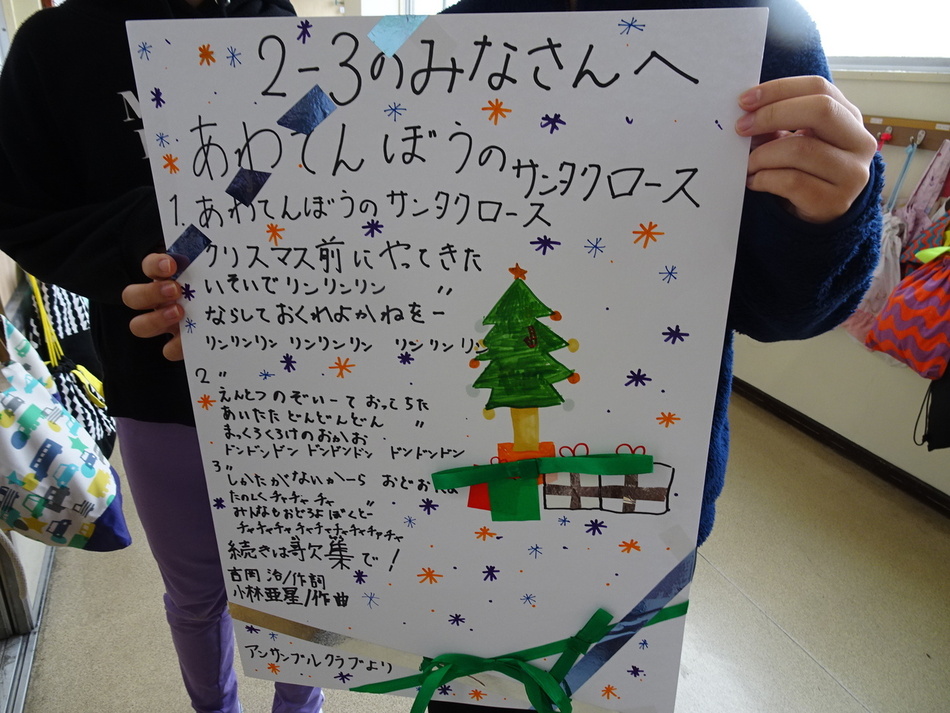 2-3のみなさんへ
あわてんぼうのサンタクロース
1. あわてんぼうのサンタクロース
クリスマス前にやってきた
いそいでリンリンリン 〃
ならしておくれよかねをー
リンリンリン リンリンリン リンリンリン
2〃
えんとつのぞいーて おっこちた
あいたた どんどんどん 〃
まっくろくろけのおかお
ドンドンドン ドンドンドン ドンドンドン
3〃
しかたがないかーら おどおれよ
たのしくチャチャチャ 〃
みんなもおどろよぼくとー
チャチャチャ チャチャチャチャチャチャ
続きは歌集で!
吉岡 治/作詞
小林亜星/作曲
アンサンブルクラブより